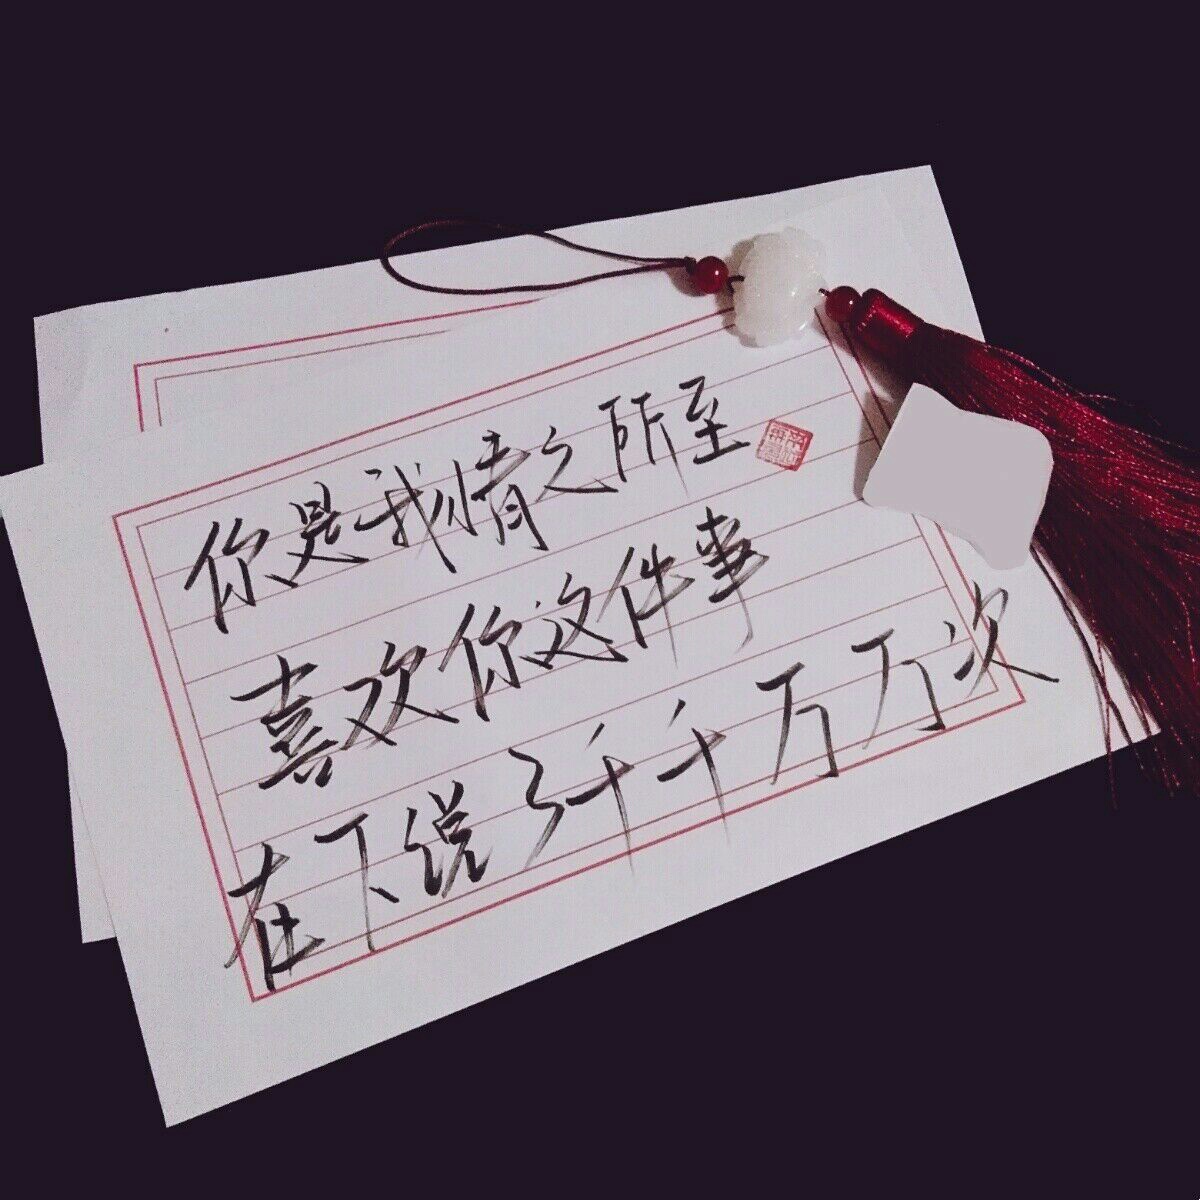 你是我情之所至
喜欢你这件事
在下说了千千万万次